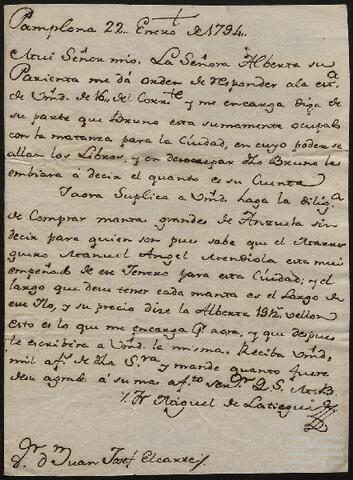 Pamplona 22 Enero de 1794
Mui Señor mio. La Señora Alberta su
Parienta me dá orden de responder a la est.ª
de Vmd. de 16 del Corr.te y me encarga diga de
su parte que Bruno esta sumamente ocupado
con la matanza para la Ciudad, en cuyo poder se
allan los Libros, y en desocupar Bruno la
embiara á decir el quanto es su Cuenta
Iaora Suplica a Vmd. haga la dilig.ª
de Comprar mantas grandes de Anzuola sin
decir para quien son pues sabe que el
Manuel Angel Mendiola esta mui
empeñado de ese Genero para esta Ciudad; y el
largo que deve tener cada manta es el Largo de
ese Ilo, y su precio dize la Alberta 19½ vellon
esto es lo que me encarga p.r aora, y que despues
le escribira a Vmd. la misma. Reciva Vmd.
mil af.s de Sra y mande quanto fuere
desu agrado á su mas af.to ser.or Q. S. M. B.
Miguel de Latiegui
S.r D.n Juan Josef Elcarrej